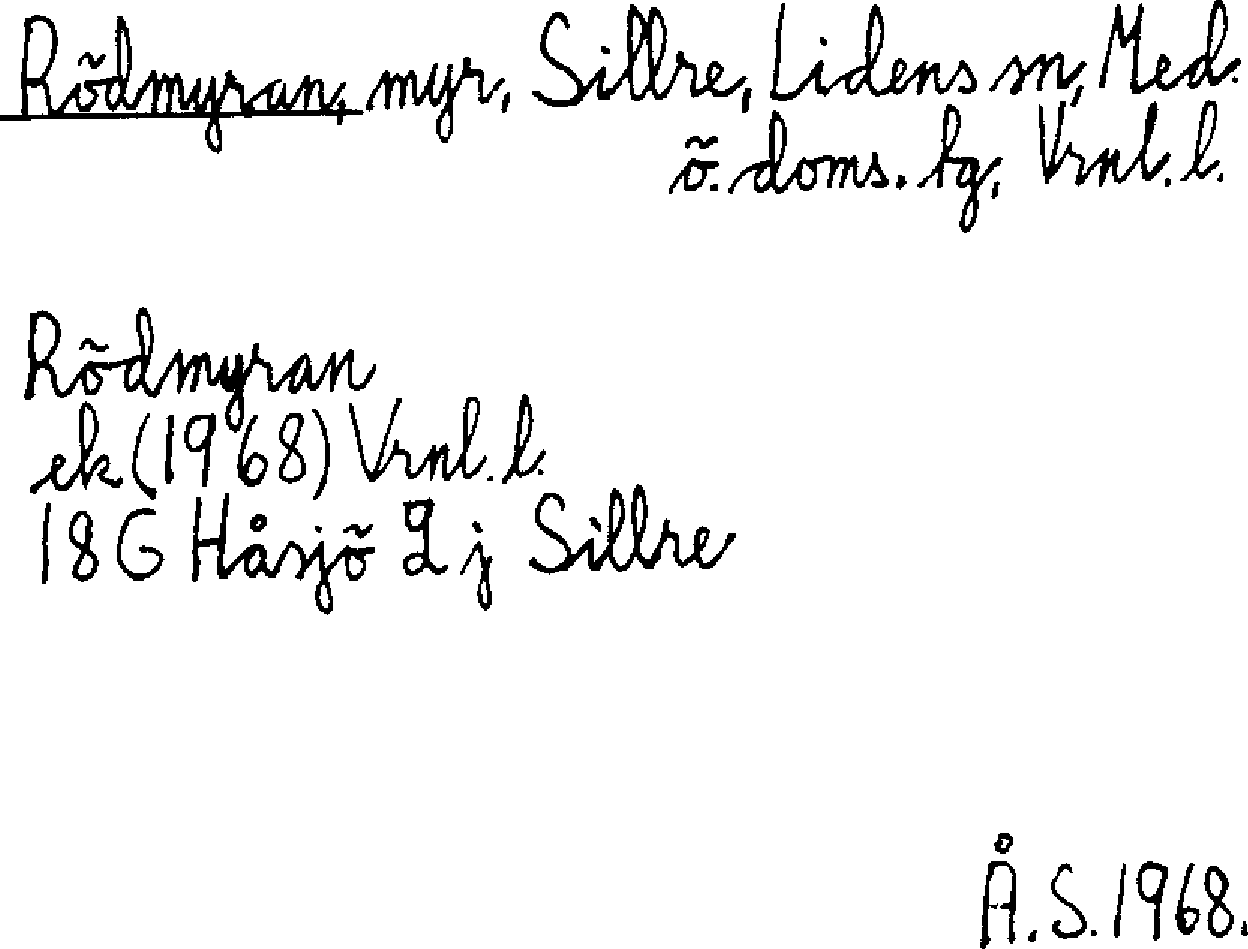 Rödmyran, myr, Sillre, Lidens sn, Med.
ö. doms. tg, Vrnl. l.
Rödmyran
ek (1968) Vrnl. l.
18G Håsjö 2 j Sillre
Å. S. 1968.